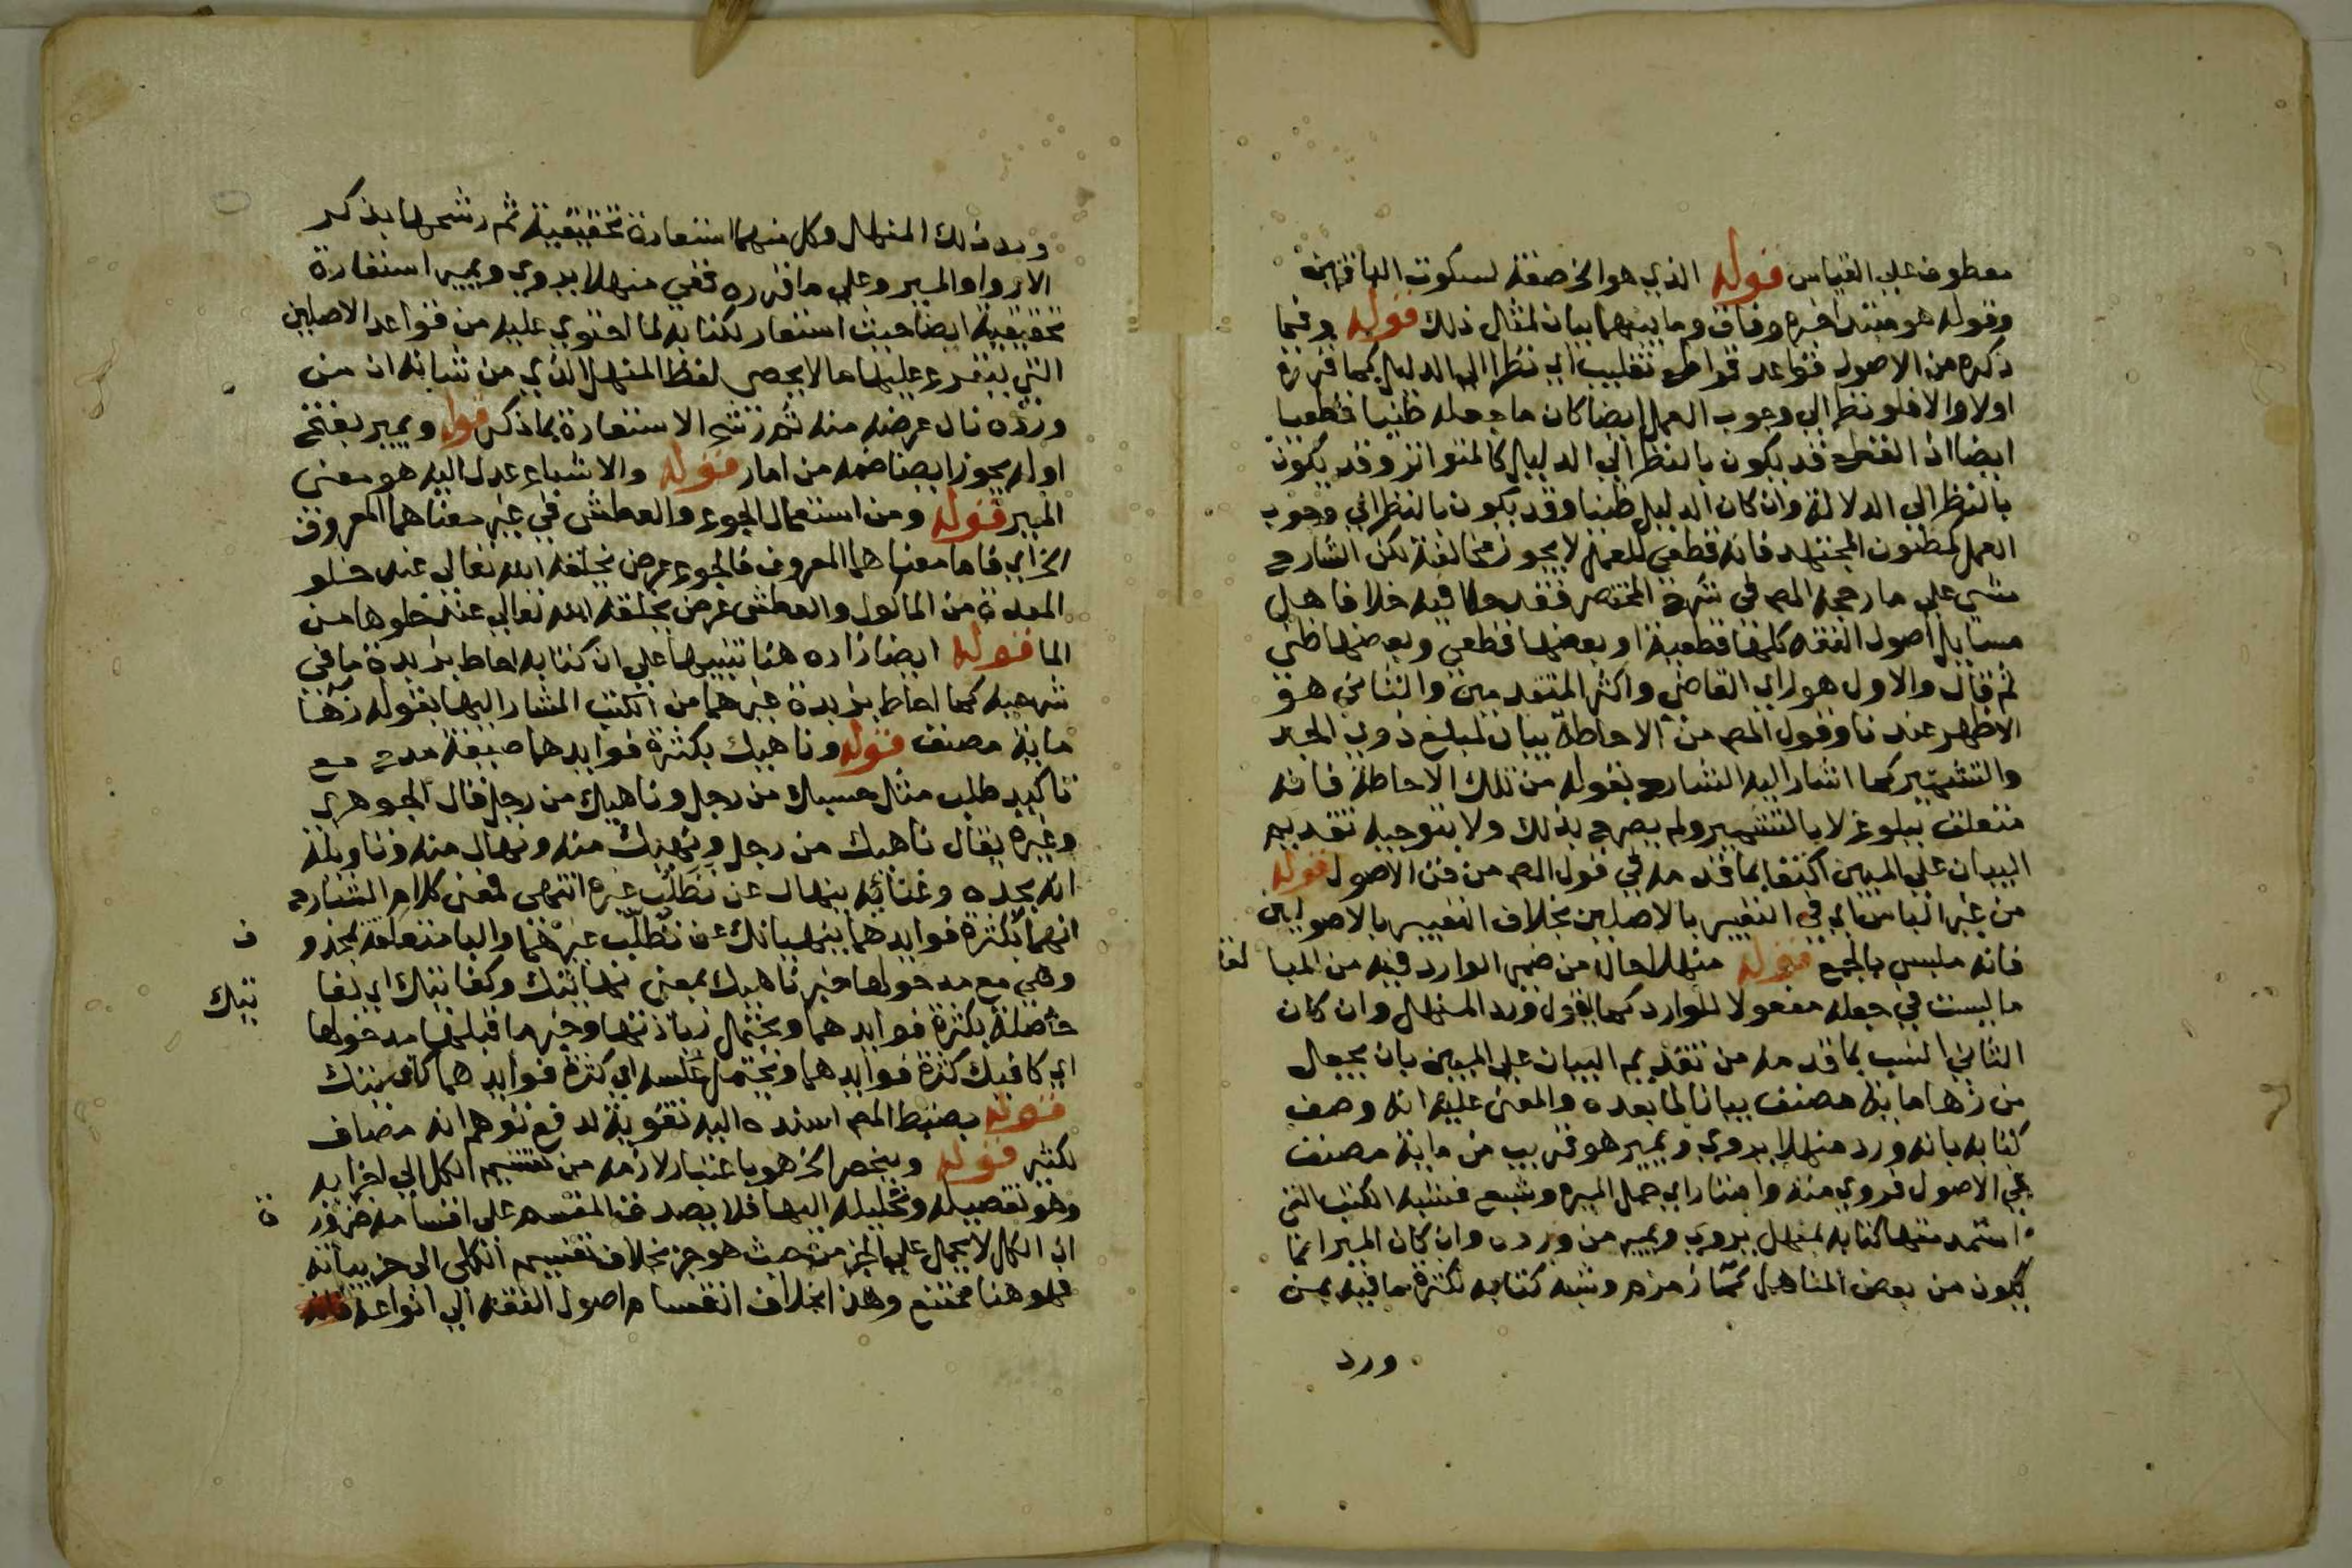 معطوف على القياس قوله الذي هو الخ صفة لسكوت الباقين
وقوله هو مبتدا خبره وفاق وما بينهما بيان لمثال ذلك قوله وفيما
ذكره من الاصول قواعد قواطع تغليب اي نظرا الى الدليل كما قررته
اولا والا فلو نظر الى وجوب العمل ايضا كان ما جعله ظنيا قطعيا
ايضا اذ القطع قد يكون بالنظر الى الدليل كالمتواتر وقد يكون
بالنظر الى الدلالة وان كان الدليل ظنيا وقد يكون بالنظر الى وجوب
العمل كمظنون المجتهد فانه قطعي للعمل لا يجوز مخالفة لكن الشارح
مشى على ما رجحه المص في شرح المختصر فقد حكا فيه خلافا هل
مسايل اصول الفقه كلها قطعية او بعضها قطعي وبعضها ظني
ثم قال والاول هو راي القاضي واكثر المتقدمين والثاني هو
الاظهر عندنا وقول المص من الاحاطة بيان لمبلغ ذوي الجد
والتشمير كما اشار اليه الشارح بقوله من تلك الاحاطة فانه
متعلق ببلوغ لا بالتشمير ولم يصرح بذلك ولا بتوجيه تقديم
البيان على المبين اكتفا بما قدمه في قول المص من فن الاصول قوله
من غير الباس اي في التغيير بالاصلين بخلاف التغيير بالاصوليين
فانه ملبس بالجمع قوله منهلا حال من ضمير الوارد فيه من المبا لغة
ما ليست في جعله مفعولا للوارد كما يقول ورد المنهل وان كان
الثاني انسب بما قدمه من تقديم البيان على المبين بان يجعل
من زهاماية مصنف بيانا لما بعده والمعنى عليه انه وصف
كتابه بانه ورد منهلا يروي ويمير هو قريب من ماية مصنف
في الاصول فروي منه وامتار اي حمل الميرة وشبع فشبه الكتب التي
استمد منها كتابه بمنهل يروي ويمير من ورده وان كان المير انما
يكون من بعض المناهل كما زمزم وشبه كتابه لكثرة ما فيه بمن
ورد
ورد ذلك المنهل وكل منهما استعارة تحقيقية ثم رشحها بذكر
الاروا والمير وعلى ما اقرره ففي منهلا يروي ويمير استعارة
تحقيقية ايضا حيث استعار لكتابه لما احتوي عليه من قواعد الاصلين
التي يتفرع عليها ما لا يحصى لفظ المنهل الذي من شانه ان من
ورده نال غرضه منه ثم رشح الاستعارة بما ذكر قوله ويمير بفتح
اوله يجوز ايضا ضمه من امار قوله والاشباع عدل اليه هو معنى
المير قوله ومن استعمال الجوع والعطش في غير معناهما المعروف
الخ اي فاما معناهما المعروف فالجوع عرض يخلقه الله تعالى عند خلو
المعدة من الماكول والعطش عرض يخلقه الله تعالى عند خلوها من
الما قوله ايضا زاده هنا تنبيها على ان كتابه احاط بزبدة ما في
شرحيه كما احاط بزبدة غيرهما من الكتب المشار اليها بقوله زها
ماية مصنف قوله وناهيك بكثرة فوايدهما صيغة مدح مع
تاكيد طلب مثل حسبك من رجل وناهيك من رجل قال الجوهري
وغيره يقال ناهيك من رجل ونهيك منه ونهاك منه وتاويله
انه بجده وغنائه ينهاك عن تطلب غيره انتهى فمعنى كلام الشارح
انهما بكثرة فوايدهما ينهيانك عن تطلب غيرهما والبا متعلقة بمحذو ف
وهي مع مدخولها خبر ناهيك بمعنى نهايتك وكفايتك اي كفا يتك
حاصلة بكثرة فوايدهما ويحتمل زيادتها وخبر ما قبلها مدخولها
اي كافيك كثرة فوايدهما ويحتمل عكسه اي كثرة فوايدهما كافيتك
قوله بضبط المص اسنده اليه تقوية لدفع توهم انه مضاف
لكثير قوله وينحصر الخ هو باعتبار لازمه من تقسيم الكل الى اجزايه
وهو تفصيله وتحليله اليها فلا يصدق المقسم على اقسامه ضرور ة
ان الكل لا يحمل على الجز من حيث هو جز بخلاف تقسيم الكلي الى جزيياته
فهو هنا ممتنع وهذا بخلاف انقسام اصول الفقه الى انواعه فانه